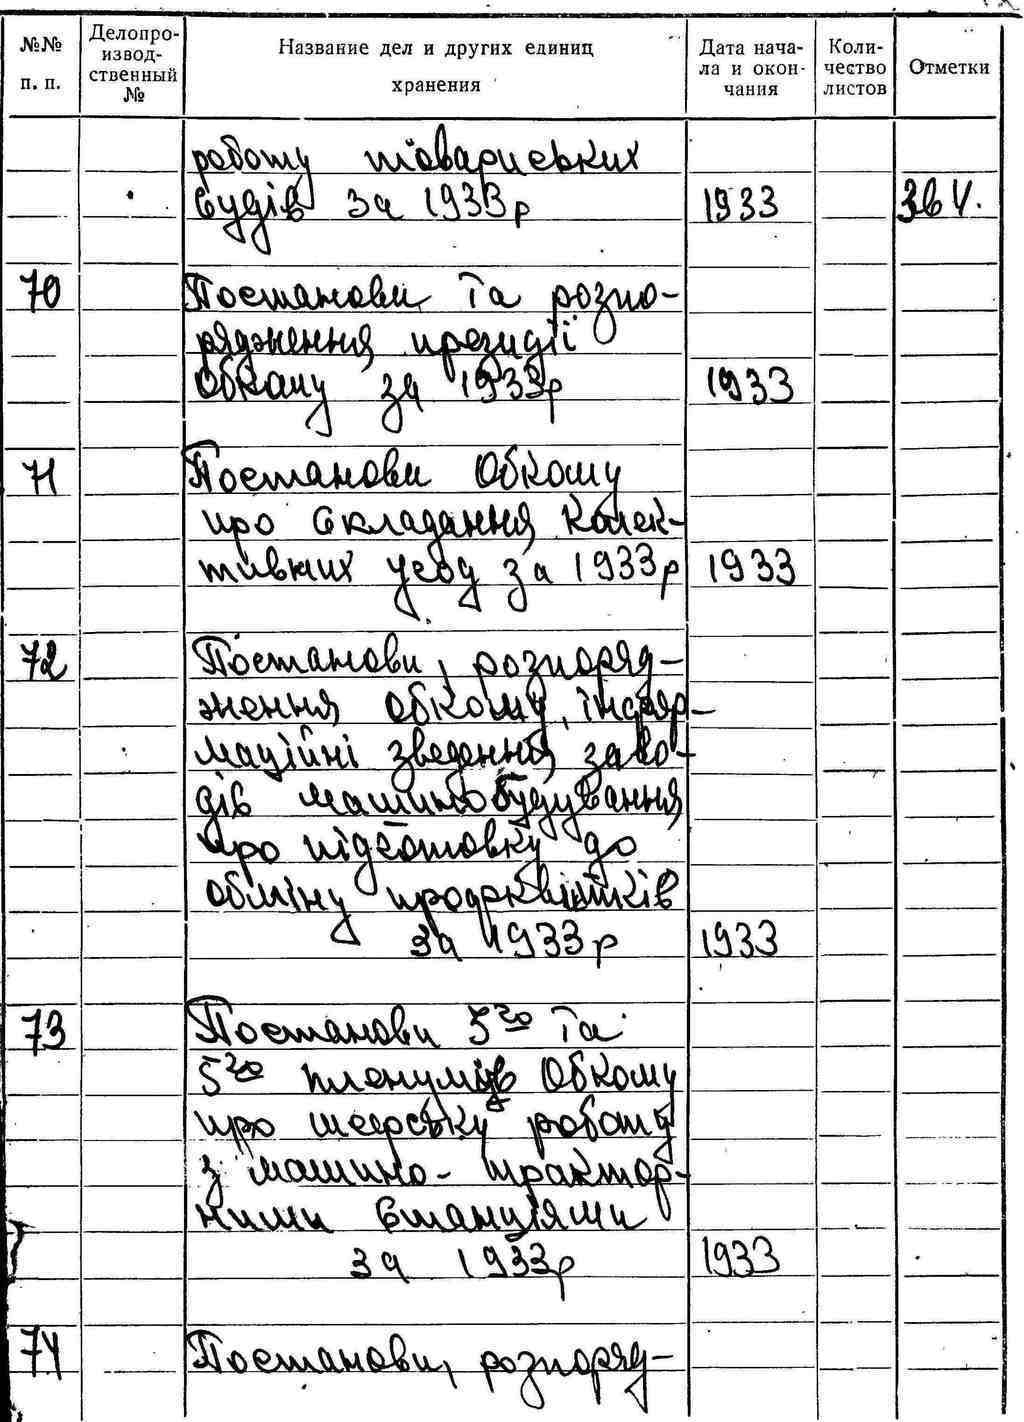 №№ п. п.
Делопро-извод-ственный №
Название дел и других единиц хранения
Дата нача-ла и окон-чания
Коли-чество листов
Отметки
роботу товариських
судів за 1933р 1933
70 Постанови та розпо-
рядження президії
обкому за 1933р 1933
71 Постанови Обкому
про складання колек-
тивних угод за 1933р 1933
72 Постанови, розпоряд-
ження обкому, інфор-
маційні зведення заво-
дів машинобудування
про підготовку до
обміну профквитків
за 1933р 1933
73 Постанови 5го та
5го пленумів Обкому
про шефську роботу
з машино-трактор-
ними станціями
за 1933р 1933
74 Постанови, розпоряд-